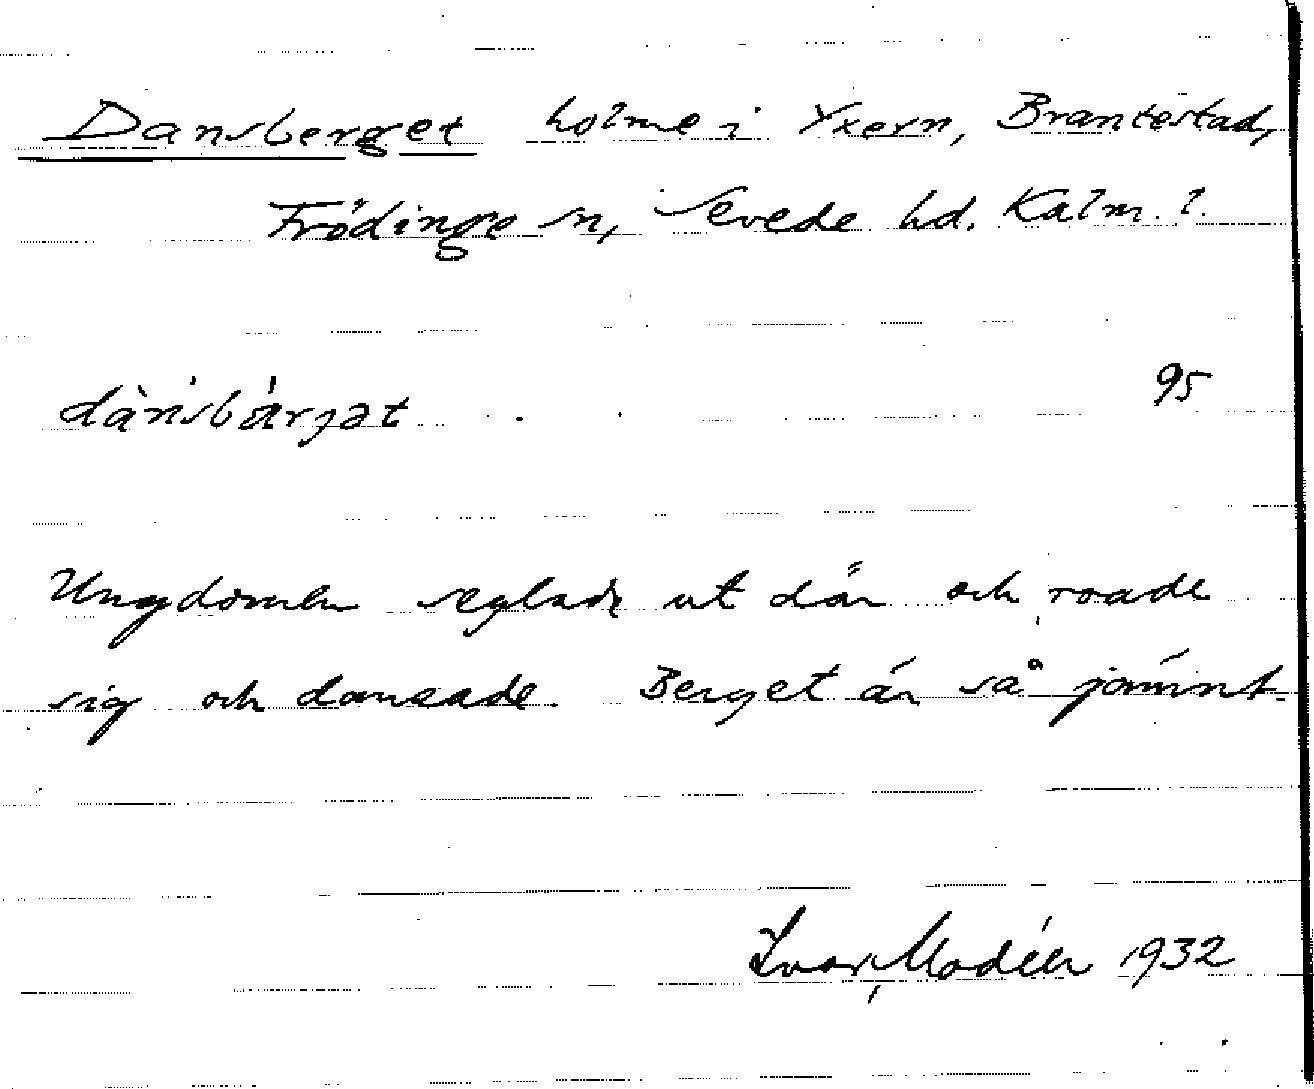 Dansberget holme i Yxern, Brantestad,
Frödinge sn, Sevede hd. Kalm. l.
dànsbárjət 95
Ungdomen seglade ut där och roade
sig och dansade. Berget är så jämnt.
Ivar Modéer 1932